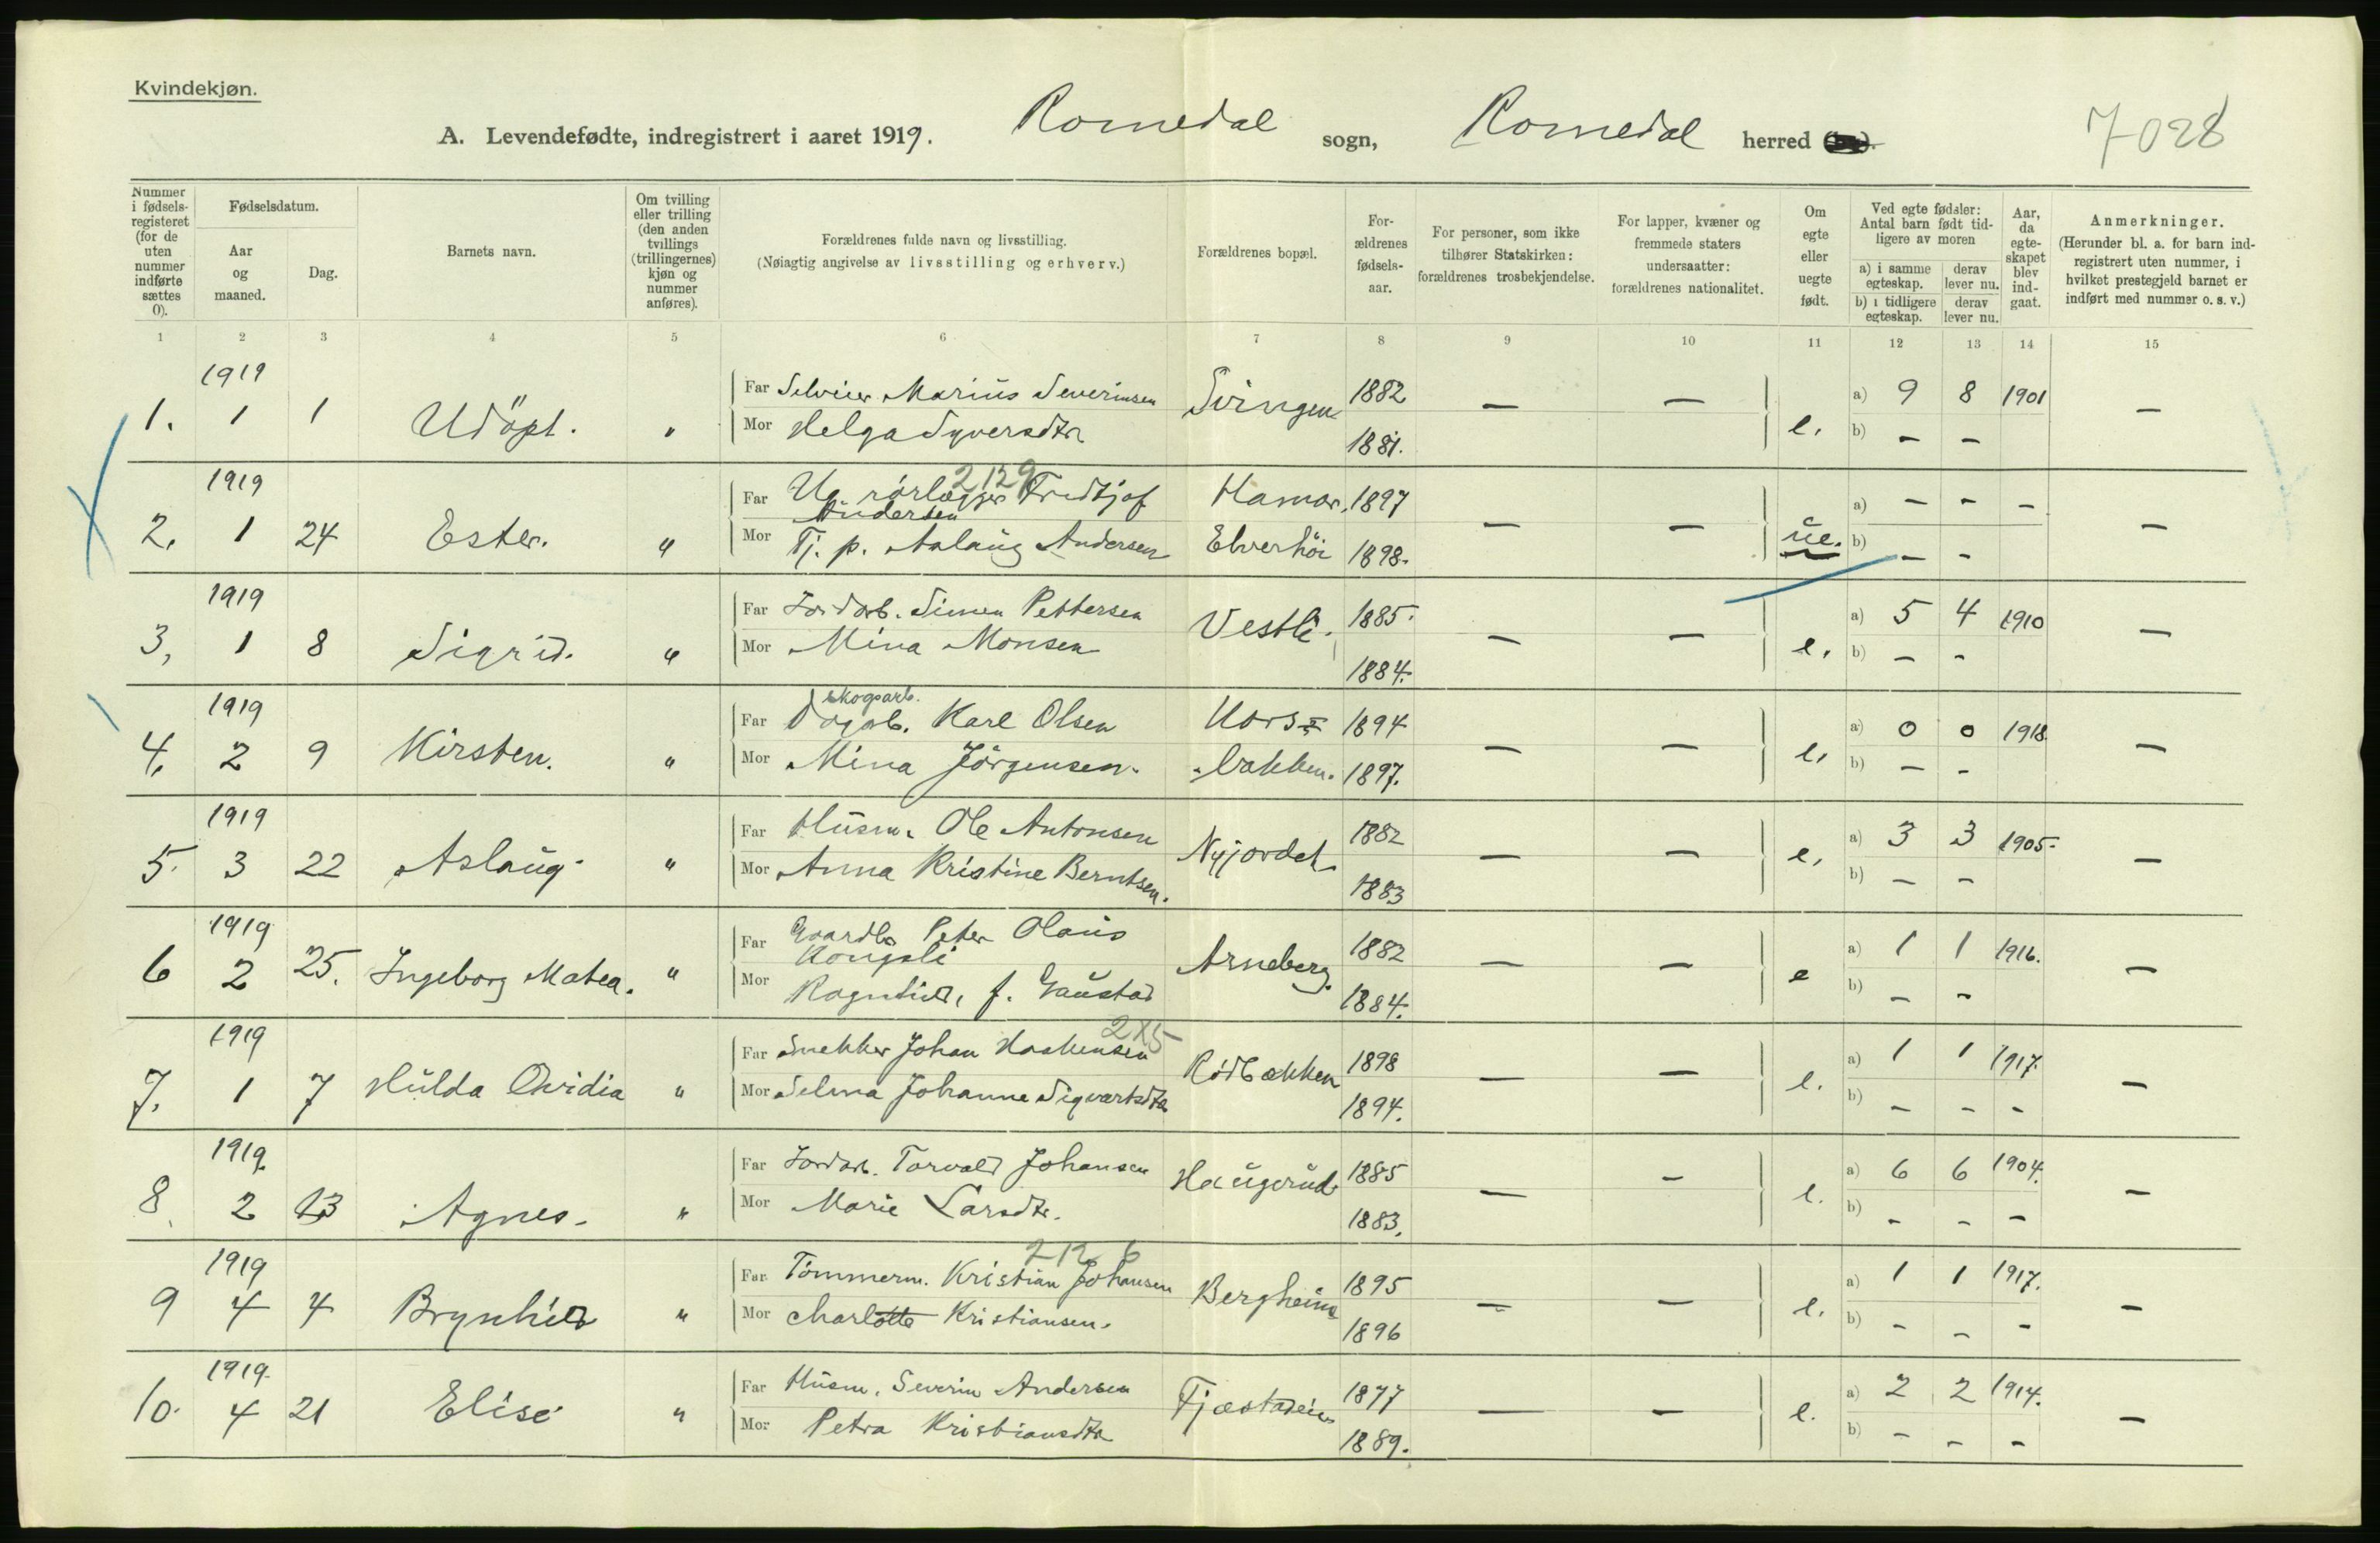 Kvindekjøn.
A. Levendefødte, indregistrert i aaret 1919. Romedal sogn, Romedal herred 7028
Nummer i fødsels-registeret (for de uten nummer indførte sættes 0).
Fødselsdatum.
Aar og maaned.
Dag.
Barnets navn.
Om tvilling eller trilling (den anden tvillings (trillingernes) kjøn og nummer anføres).
Forældrenes fulde navn og livsstilling.
(Nøiagtig angivelse av livsstilling og erhverv.)
Forældrenes bopæl.
For-ældrenes fødsels-aar.
For personer, som ikke tilhører Statskirken: forældrenes trosbekjendelse.
For lapper, kvæner og fremmede staters undersaatter: forældrenes nationalitet.
Om egte eller uegte født.
Ved egte fødsler: Antal barn født tid-ligere av moren
a) i samme egteskap. derav lever nu.
b) i tidligere egteskap. derav lever nu.
Aar, da egte-skapet blev ind-gaat.
Anmerkninger.
(Herunder bl. a. for barn ind-registrert uten nummer, i hvilket prestegjeld barnet er indført med nummer o. s. v.)
1 2 3 4 5 6 7 8 9 10 11 12 13 14 15
1919 Far Selveier Marius Severinsen Svingen 1882 — — a) 9 8 1901 —
1. 1 1 Udöpt. " Mor Helga Syversdtr 1881. e. b) — —
1919 2129
Far Ug. rörlægger Fridtjof Andersen Hamar. 1897 — — a) — — — —
2. 1 24 Ester. " Mor Tj. p. Aslaug Andersen Elverhöi 1898. ue. b) — —
1919 Far Jordarb. Simen Pettersen Vestli. 1885. — — a) 5 4 1910 —
3, 1 8 Sigrid. " Mor Mina Monsen 1884. e. b) — —
skogsarb.
1919 Far Karl Olsen Kors= 1894 — — a) 0 0 1918. —
4. 2 9 Kirsten. " Mor Mina Jörgensen. bakken. 1897. e, b) — —
1919 Far Husm. Ole Antonsen Nyjordet 1882 — — a) 3 3 1905. —
5. 3 22 Aslaug. " Mor Anna Kristine Berntsen. 1883 e, b) — —
1919 Far Gaardbr Peter Olaus Kongsli Arneberg. 1882 — — a) 1 1 1916. —
6 2 25. Ingeborg Matea. " Mor Ragnhild, f. Gaustad 1884. e b) — —
1919 215
Far Snekker Johan Haakensen Rödbækken 1898 — — a) 1 1 1917. —
7. 1 7 Hulda Ovidia " Mor Selma Johanne Sigvartsdtr 1894. e. b) — — —
1919. Far Jordarb. Torvald Johansen Haugerud 1885 — — a) 6 6 1904. —
8. 2 13 Agnes. " Mor Marie Larsdtr. 1883. e. b) — — —
1919 2126
Far Tömmerm. Kristian Johansen Bergheim 1895 — — a) 1 1 1917. —
9 4 4 Brynhild " Mor Charlotte Kristiansen. 1896 e. b) — — —
1919. Far Husm. Severin Andersen Fjæstadeie 1877 — — a) 2 2 1914. —
10. 4 21 Elise " Mor Petra Kristiansdtr 1889. e. b) — — —